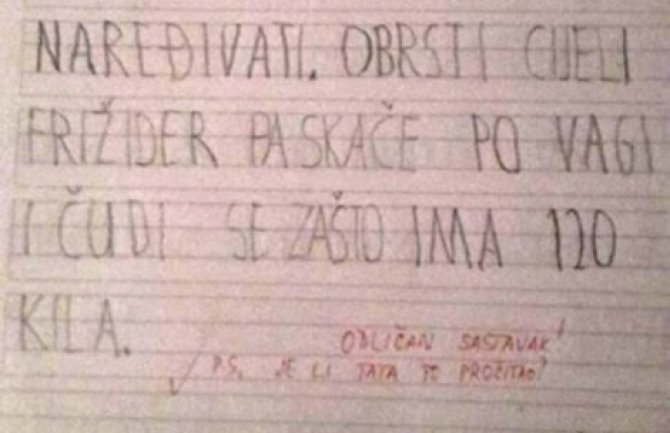 NAREĐIVATI. OBRSTI CIJELI
FRIŽIDER PA SKAČE PO VAGI
I ČUDI SE ZAŠTO IMA 120
KILA.
ODLIČAN SASTAVAK!
P.S. JE LI TATA TO PROČITAO?